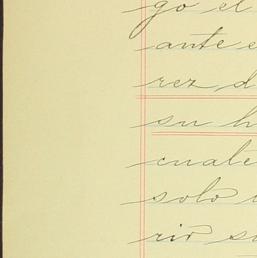 go el
ante e
rez d
su h
cuate
solo
rio su